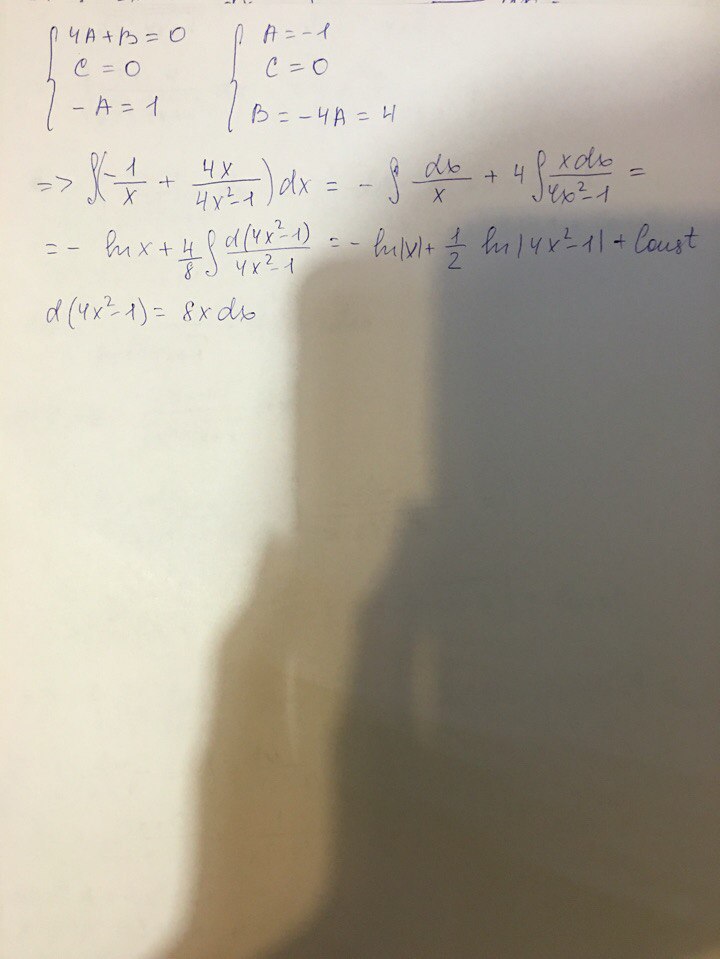 { 4A+B=0 { A=-1
C=0 C=0
-A=1 B=-4A=4
=> ∫(-1/x + 4x/(4x²-1))dx = - ∫ dx/x + 4∫ xdx/(4x²-1) =
= - ln x + 4/8 ∫ d(4x²-1)/(4x²-1) = - ln|x| + 1/2 ln|4x²-1| + Const
d(4x²-1) = 8xdx